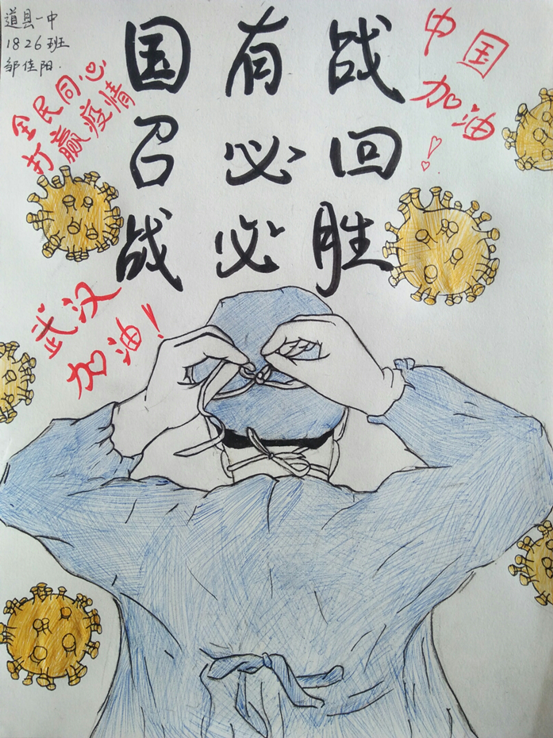 道县一中
1826班
邹佳阳.
国有战
召必回
战必胜
中国
加油!
全民同心
打赢疫情
武汉
加油!